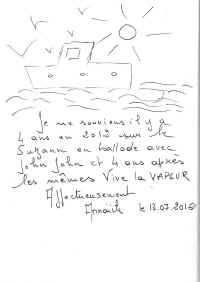 Je me souviens il y a
4 ans en 2012 sur le
Suzann en ballade avec
John John et 4 ans après
les mêmes Vive la VAPEUR
Affectueusement
le 13.07.2016